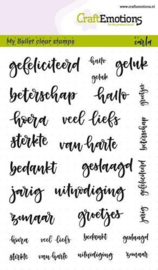 CraftEmotions
www.craftemotions.nl
My Bullet clear stamps
by carla
gefeliciteerd hallo geluk
geluk
beterschap hallo groetjes
hoera veel liefs
sterkte van harte beterschap
bedankt geslaagd
jarig uitnodiging gefeliciteerd
zomaar groetjes jarig
hoera veel liefs bedankt geslaagd
sterkte van harte uitnodiging zomaar